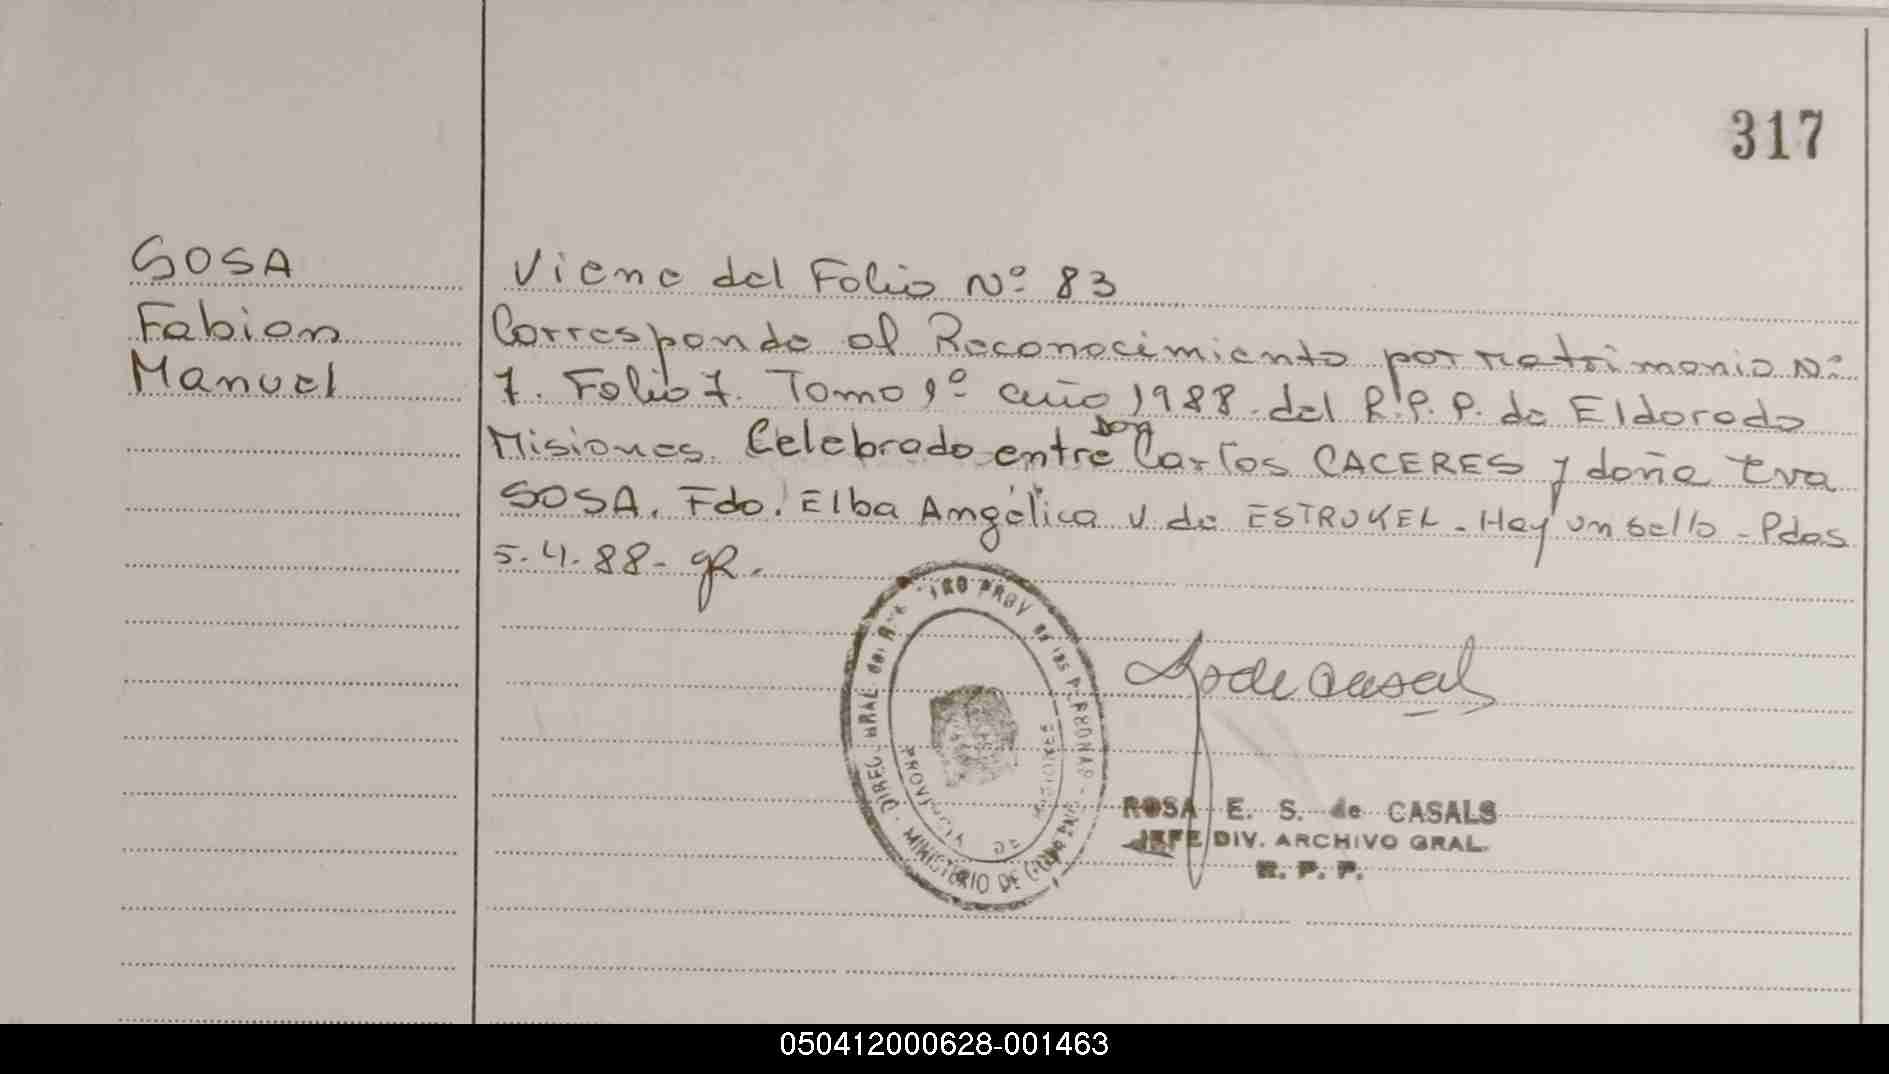 317
SOSA
Fabian
Manuel
Viene del Folio Nº 83
Corresponde al Reconocimiento por matrimonio Nº
7. Folio 7. Tomo 1º año 1988 del R.P.P. de Eldorado
Misiones. Celebrado entre Don Carlos CACERES y doña Eva
SOSA. Fdo. Elba Angélica v. de ESTRUKEL - Hay un sello - Pdas
5.4.88- gR.
DIREC. GRAL del PROV de las PERSONAS
MINISTERIO DE
PROVINCIA DE MISIONES
S de Casals
ROSA E. S. de CASALS
JEFE DIV. ARCHIVO GRAL.
R. P. P.
050412000628-001463